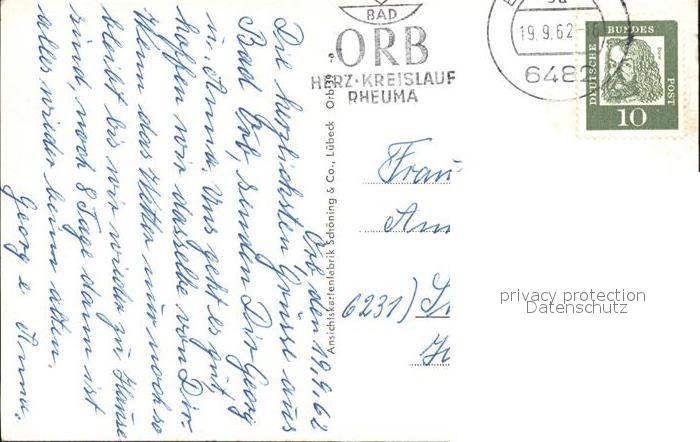 BAD
ORB
HERZ·KREISLAUF
RHEUMA
19.9.62-16
6482
DEUTSCHE BUNDES POST
10
Orb, den 19.9.62
Die herzlichsten Grüsse aus
Bad Orb, senden Dir Georg
u. Anna. Uns geht es gut,
hoffen wir dasselbe von Dir.
Wenn das Wetter nur noch so
bleibt bis wir wieder zu Hause
sind noch 8 Tage dann ist
alles wieder beim alten.
Georg u Anna.
Ansichtskartenfabrik Schöning & Co., Lübeck
Frau
6231)
privacy protection
Datenschutz